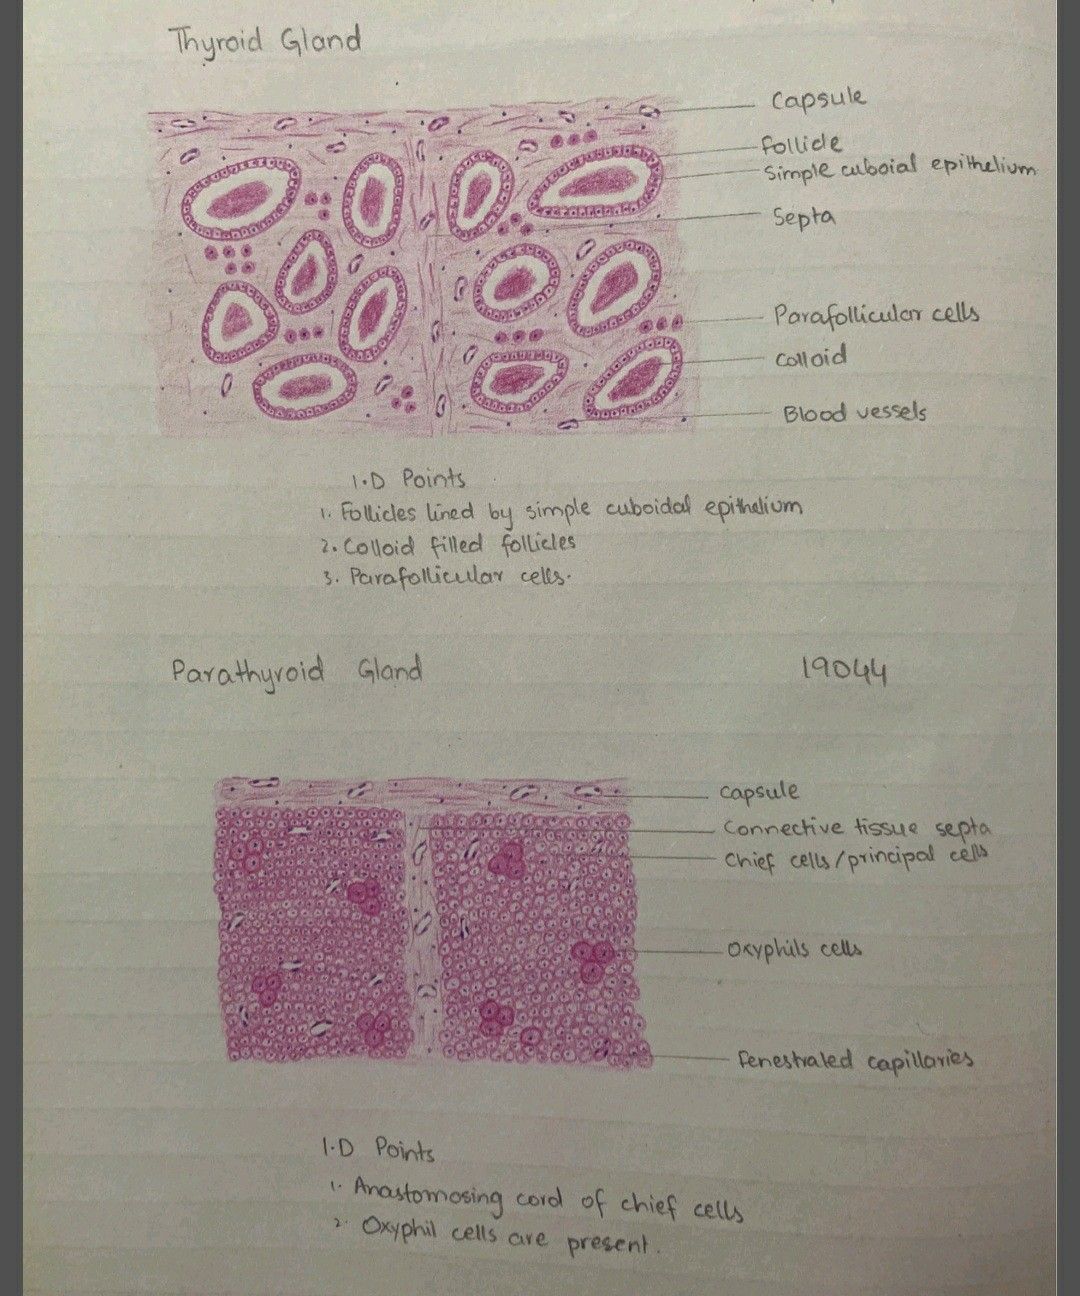 Thyroid Gland
Capsule
Follicle
Simple cuboial epithelium
Septa
Parafollicular cells
Colloid
Blood vessels
I.D Points
1. Follicles lined by simple cuboidal epithelium
2. Colloid filled follicles
3. Parafollicular cells.
Parathyroid Gland
19044
Capsule
Connective tissue septa
Chief cells/principal cells
Oxyphils cells
Fenestraled capillaries
I.D Points
1. Anastomosing cord of chief cells
2. Oxyphil cells are present.